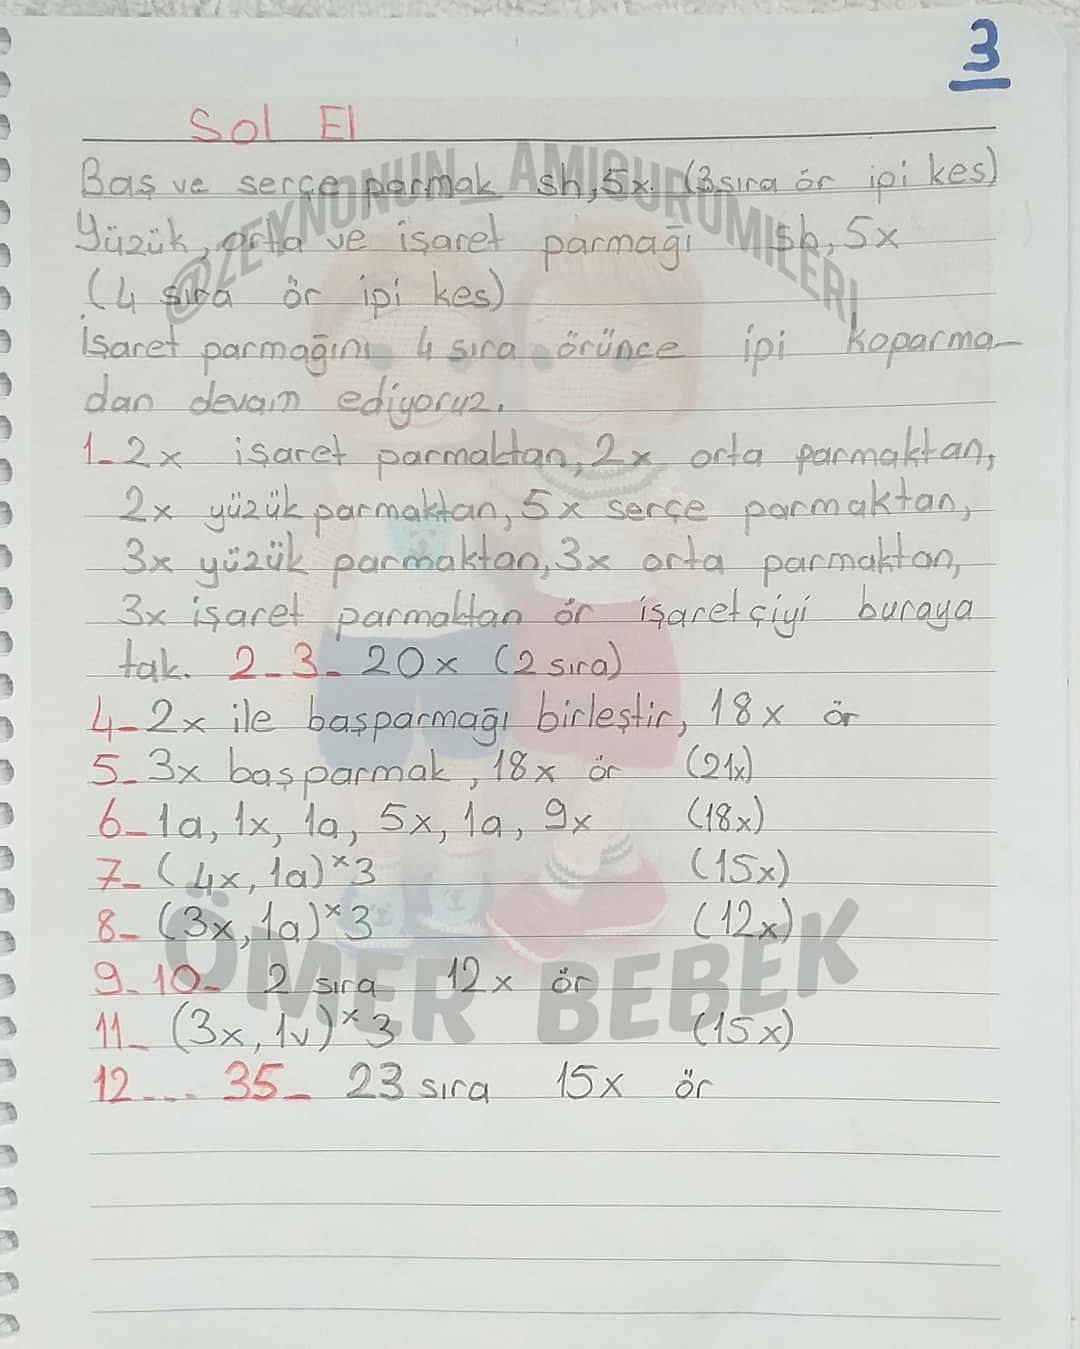 3
Sol El
Baş ve serçe parmak sh, 5x. (3 sıra ör ipi kes)
Yüzük, orta ve işaret parmağı sh, 5x
(4 sıra ör ipi kes)
İşaret parmağını 4 sıra örünce ipi koparma-
dan devam ediyoruz.
1- 2x işaret parmaktan, 2x orta parmaktan,
2x yüzük parmaktan, 5x serçe parmaktan,
3x yüzük parmaktan, 3x orta parmaktan,
3x işaret parmaktan ör işaretçiyi buraya
tak. 2-3- 20x (2 sıra)
4- 2x ile başparmağı birleştir, 18x ör
5- 3x başparmak, 18x ör (21x)
6- 1a, 1x, 1a, 5x, 1a, 9x (18x)
7- (4x, 1a)*3 (15x)
8- (3x, 1a)*3 (12x)
9-10- 2 sıra 12x ör
11- (3x, 1v)*3 (15x)
12 ... 35- 23 sıra 15x ör
@ZEYNONUN_AMIGURUMILERI
ÖMER BEBEK